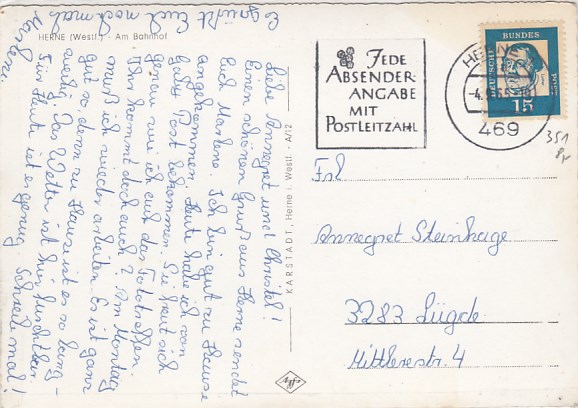 HERNE (Westf.) - Am Bahnhof
Liebe Annegret und Christel!
Einen schönen Gruß aus Herne sendet
Euch Marlene. Ich bin gut zu Hause
angekommen. Heute habe ich von
Gabi Post bekommen. Sie freut sich
genau wie ich auf das Fototreffen.
Ihr kommt doch auch? Am Montag
muß ich wieder arbeiten. Es ist ganz
gut so, denn zu Hause ist es so lang-
weilig. Das Wetter ist hier furchtbar.
Für Heute ist es genug. Schreib mal!
Es grüßt Euch noch mal
Marlene
KARSTADT, Herne i. Westf. - A/12
JEDE
ABSENDER-
ANGABE
MIT
POSTLEITZAHL
HERNE
469
DEUTSCHE BUNDESPOST
15
351
Frl
Annegret Steinhage
3283 Lügde
Mittlerestr. 4